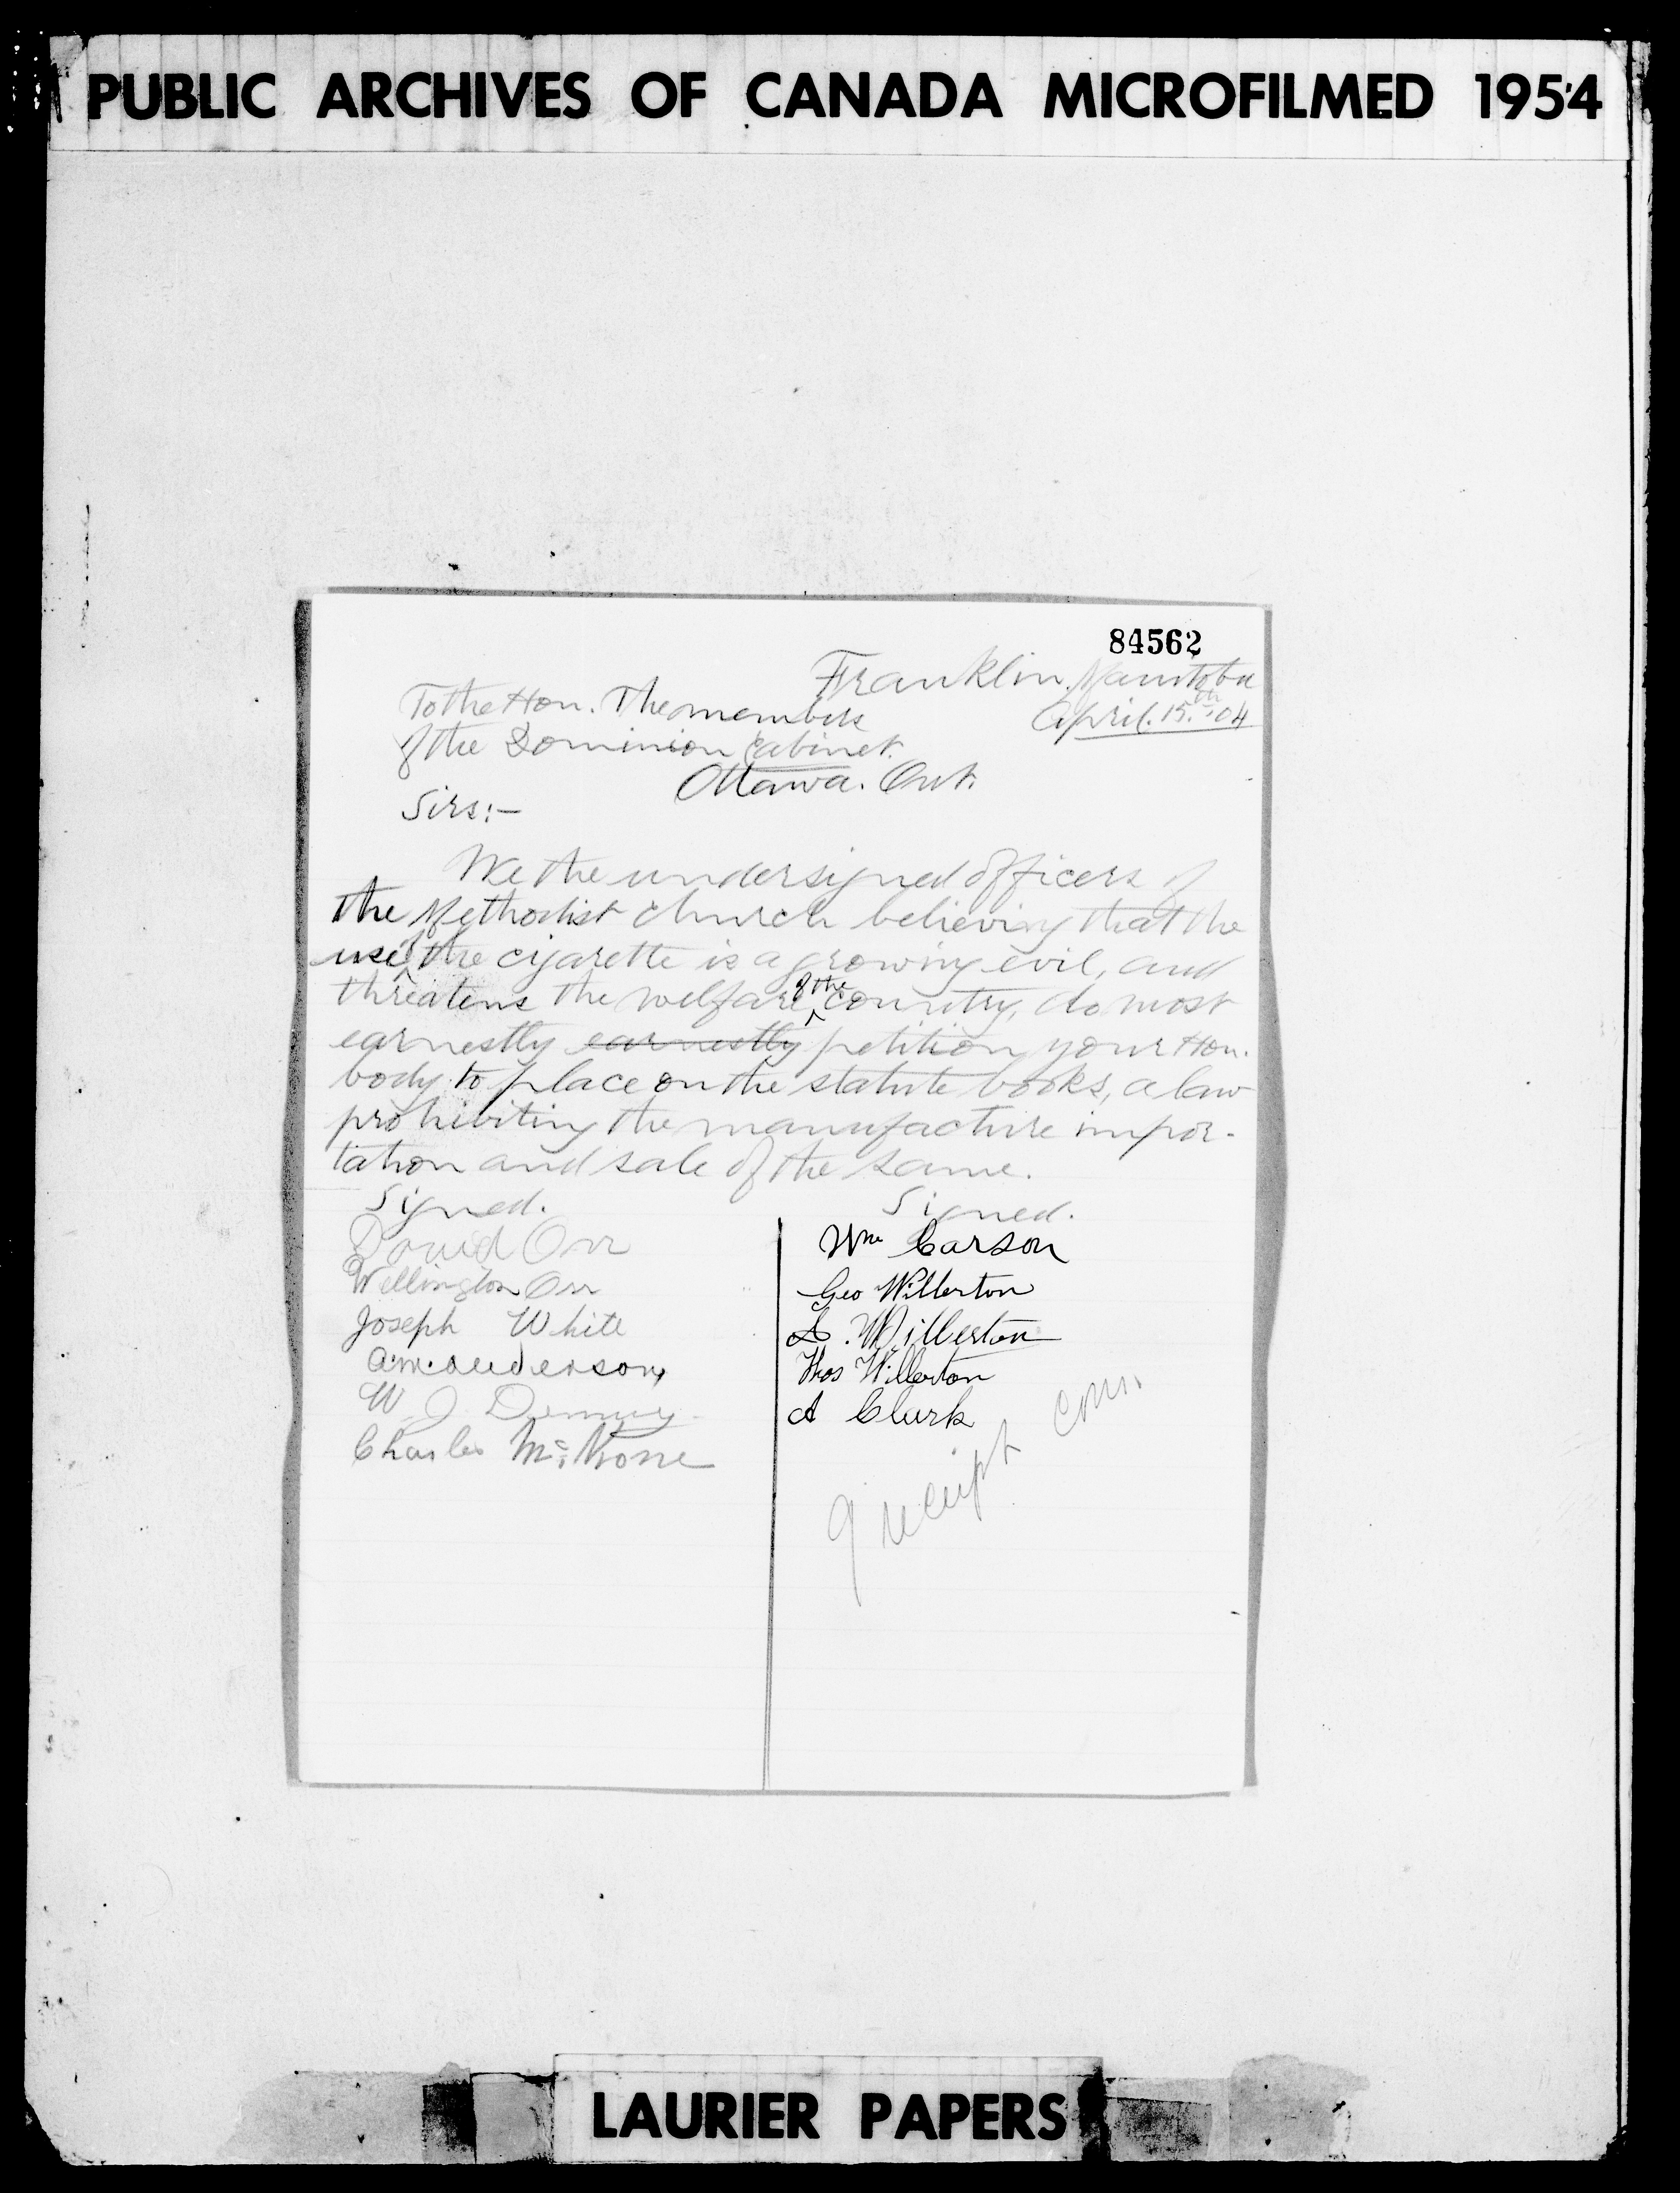 PUBLIC ARCHIVES OF CANADA MICROFILMED 1954
84562
Franklin, Manitoba
April. 15.th '04
To the Hon. The members
of the Dominion Cabinet.
Ottawa. Ont.
Sirs:-
We the undersigned officers of
the Methodist church believing that the
use of the cigarette is a growing evil, and
threatens the welfare of the country, do most
earnestly earnestly petition your Hon.
body to place on the statute books, a law
prohibiting the manufacture impor-
tation and sale of the same.
Signed.
David Orr
Wellington Orr
Joseph White
A. M. Anderson
W. J. Denny
Charles Mc
Signed.
Wm Carson
Geo Willerton
Willerton
Thos Willerton
A Clark
receipt
LAURIER PAPERS